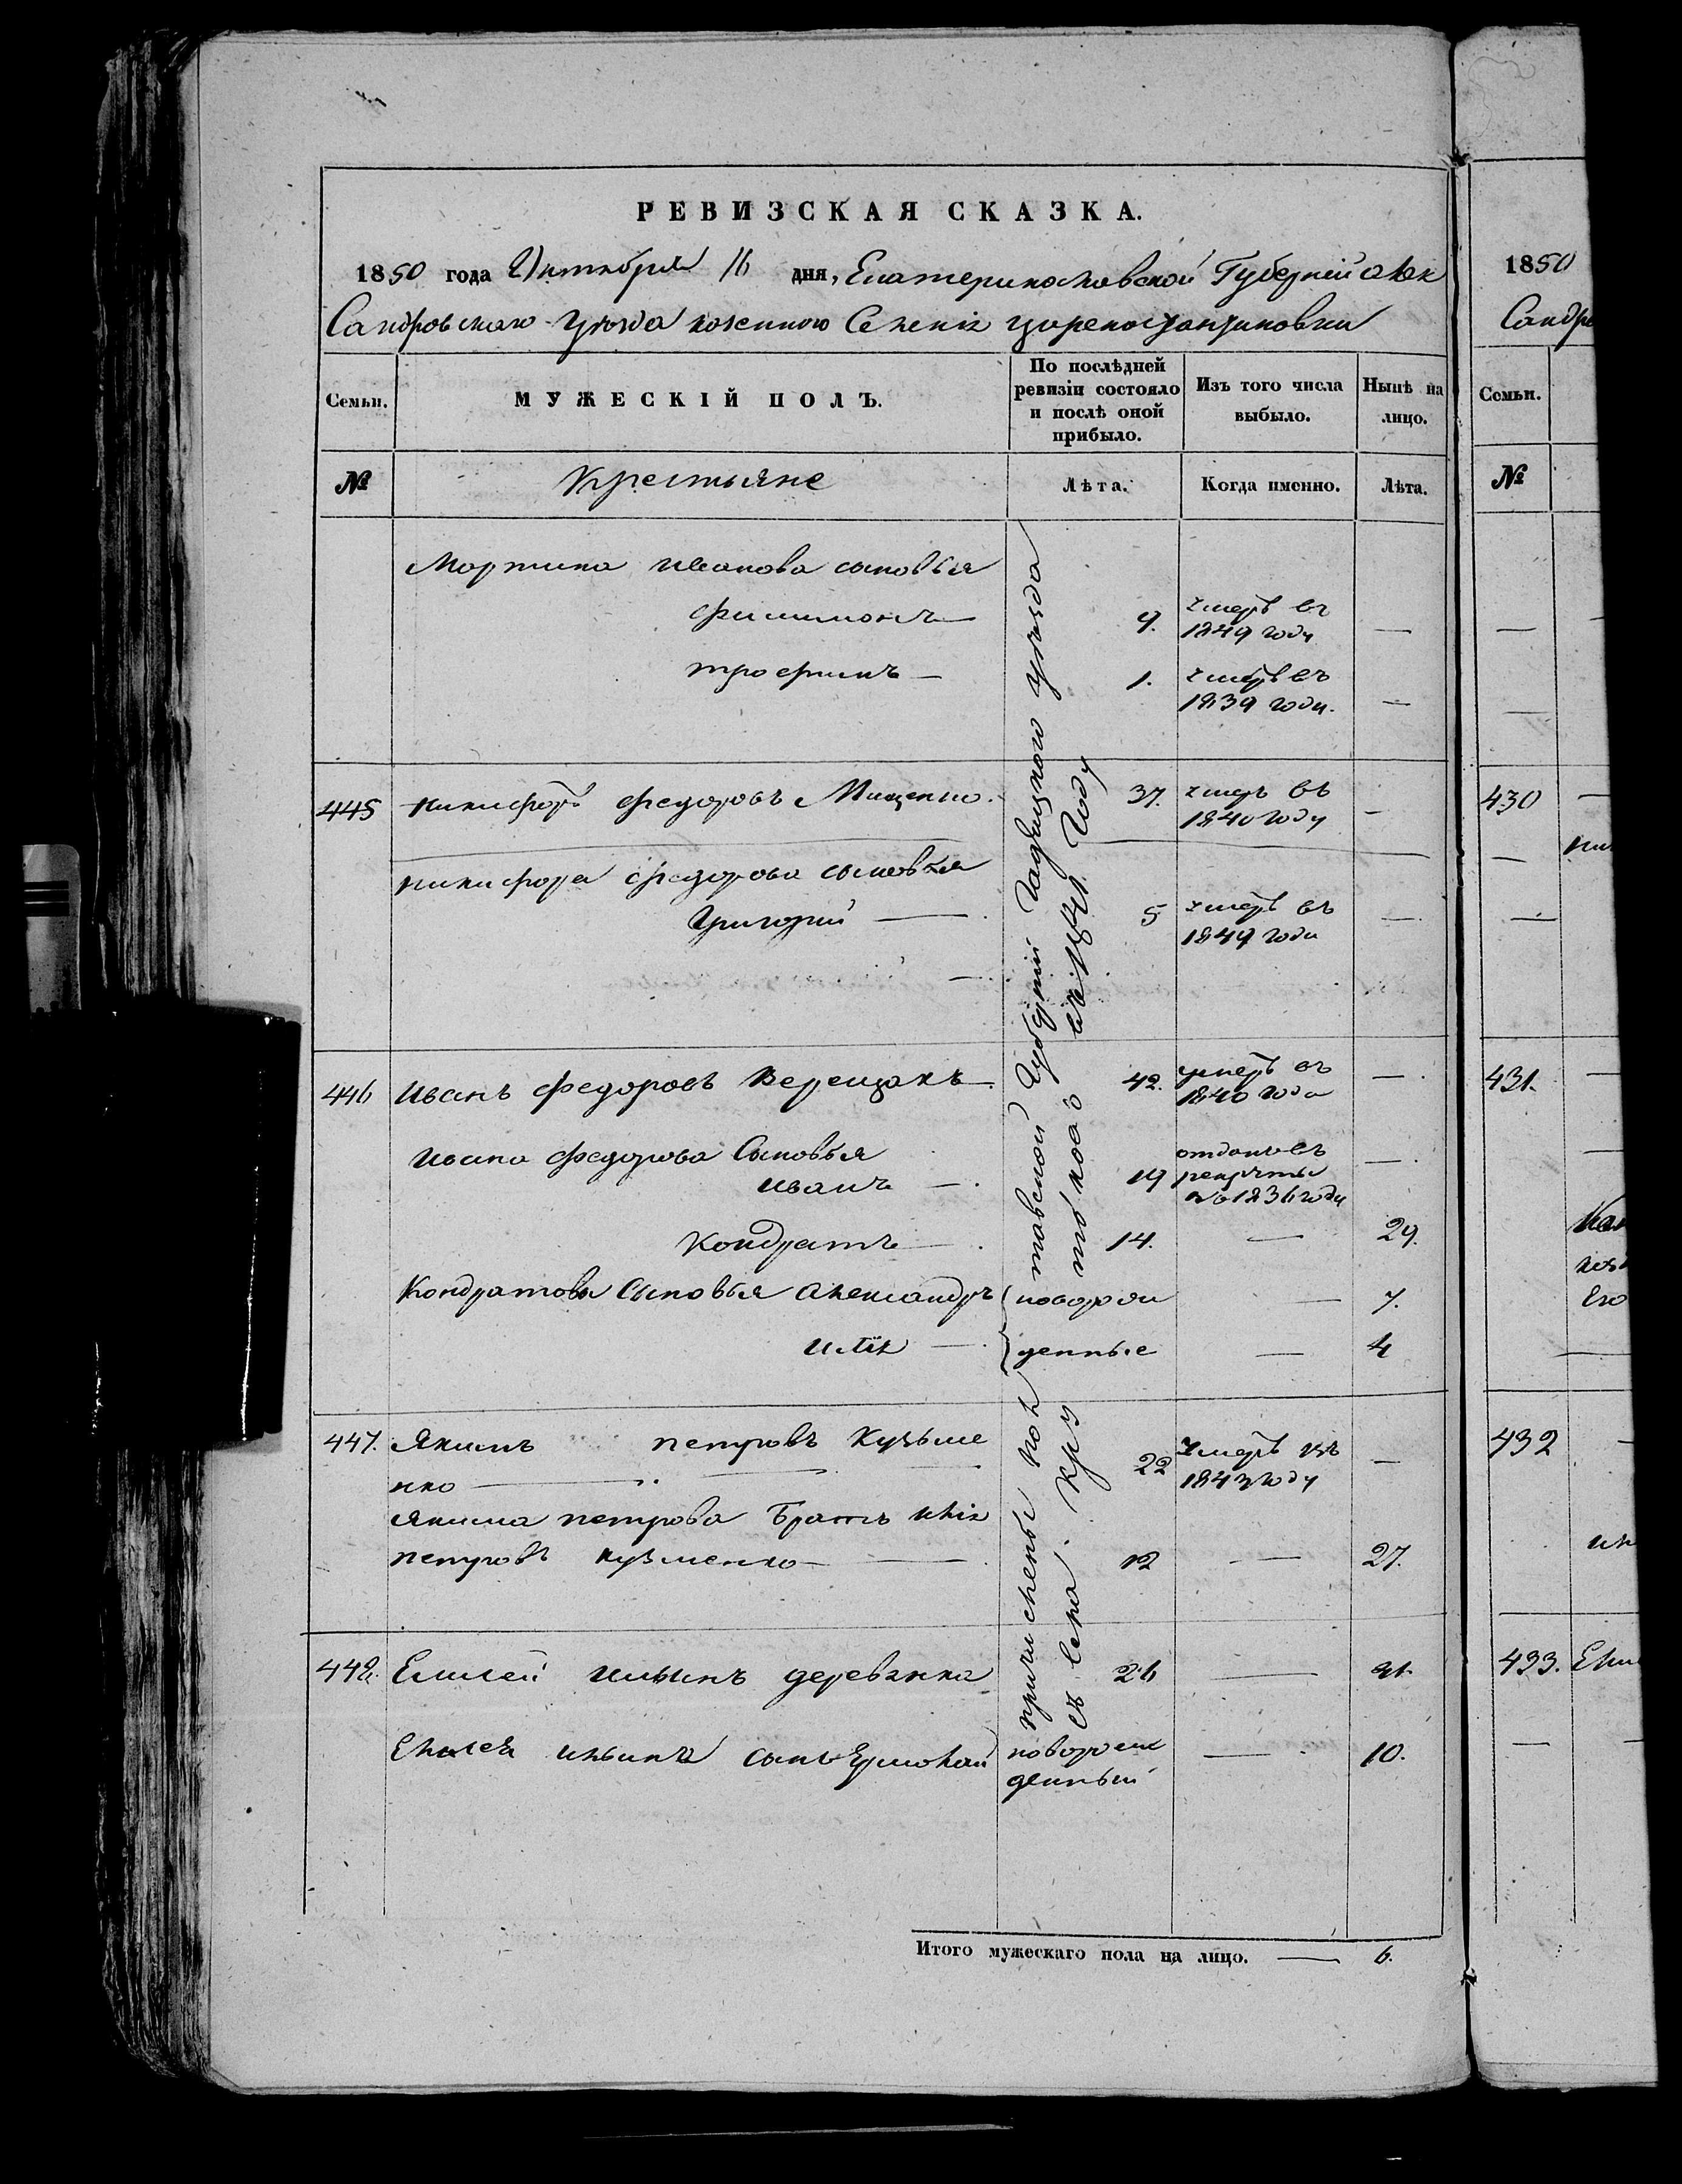 РЕВИЗСКАЯ СКАЗКА.
1850 года Октября 16 дня, Екатеринославской Губерніи Алек
Сандровскаго Уѣзда казенного Селенія Цареконстантиновки
Семьи.
МУЖЕСКІЙ ПОЛЪ.
По послѣдней ревизіи состояло и послѣ оной прибыло.
Изъ того числа выбыло.
Нынѣ на лицо.
№
Крестьяне
Лѣта.
Когда именно.
Лѣта.
Мартина Иванова сыновья
Филимонъ — 9. умеръ въ 1849 году —
Трофимъ — 1. умеръ въ 1839 году. —
445 Никифоръ Федоровъ Мищенко. 37. умеръ въ 1840 году —
Никифора Федорова сыновья
Григорий — 5 умеръ въ 1849 году —
446 Иванъ Федоровъ Верещакъ — 42. умеръ въ 1840 года —
Ивана Федорова Сыновья
Иванъ — 19 отданъ въ рекруты 1836 году —
Кондратъ — 14. — 29.
Кондратовы Сыновья Александръ новорож — 7.
Илія — денные — 4
447. Якимъ Петровъ Кузьме
нко — 22 умеръ въ 1843 году —
Якима Петрова Братъ Илія
Петровъ Кузменко — 12 — 27.
448. Елисей Ильинъ Деревянка 26 — 41.
Елисея Ильина сынъ Ермолай новорож — 10.
денный
причислены Полтавской Губерніи Гадяцкого уѣзда
съ села Кру
году
Итого мужескаго пола на лицо. — 6.
1850
Сандро
Семьи.
№
430
431.
432
433. Ели